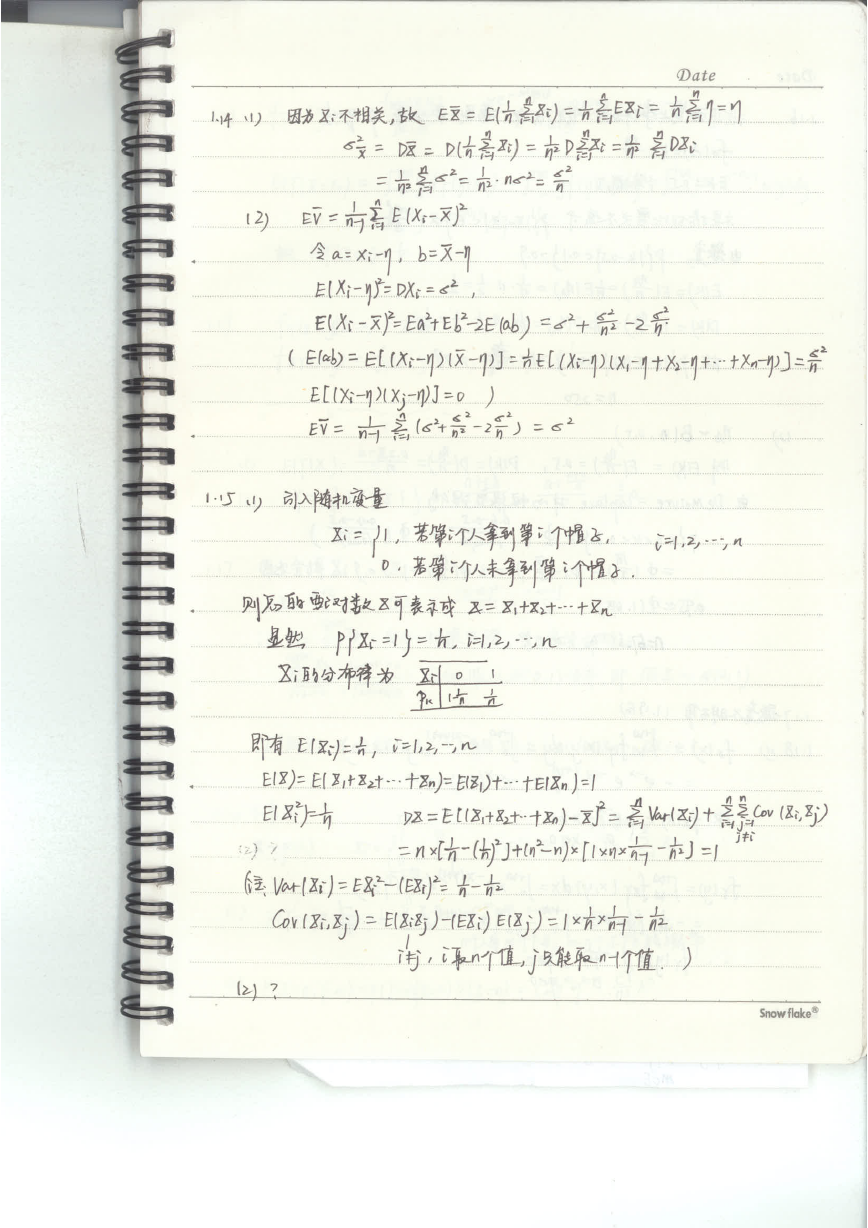 Date
1.14 (1) 因为 X_i 不相关, 故 EX̄ = E(1/n Σ_{i=1}^n X_i) = 1/n Σ_{i=1}^n EX_i = 1/n Σ_{i=1}^n η = η
σ²_x̄ = DX̄ = D(1/n Σ_{i=1}^n X_i) = 1/n² D Σ_{i=1}^n X_i = 1/n² Σ_{i=1}^n DX_i
= 1/n² Σ_{i=1}^n σ² = 1/n² · nσ² = σ²/n
(2) EV̄ = 1/(n-1) Σ_{i=1}^n E(X_i - X̄)²
令 a = X_i - η, b = X̄ - η
E(X_i - η)² = DX_i = σ²,
E(X_i - X̄)² = Ea² + Eb² - 2E(ab) = σ² + σ²/n² - 2 σ²/n
( E(ab) = E[(X_i - η)(X̄ - η)] = 1/n E[(X_i - η)(X_1 - η + X_2 - η + ··· + X_n - η)] = σ²/n
E[(X_i - η)(X_j - η)] = 0 )
EV̄ = 1/(n-1) Σ_{i=1}^n (σ² + σ²/n² - 2 σ²/n) = σ²
1.15 (1) 引入随机变量
X_i = { 1, 若第i个人拿到第i个帽子, i=1,2,···,n
0, 若第i个人未拿到第i个帽子.
则总的配对数 X 可表示成 X = X_1 + X_2 + ··· + X_n
显然 P{X_i = 1} = 1/n, i=1,2,···,n
X_i 的分布律为 X_i | 0 1
P_k | 1-1/n 1/n
即有 E(X_i) = 1/n, i=1,2,···,n
E(X) = E(X_1 + X_2 + ··· + X_n) = E(X_1) + ··· + E(X_n) = 1
E(X_i²) = 1/n DX = E[(X_1 + X_2 + ··· + X_n) - X̄]² = Σ_{i=1}^n Var(X_i) + Σ_{i=1}^n Σ_{j=1, j≠i}^n Cov(X_i, X_j)
(2) ? = n×[1/n - (1/n)²] + (n² - n)×[1×n×1/(n-1) - 1/n²] = 1
(注: Var(X_i) = EX_i² - (EX_i)² = 1/n - 1/n²
Cov(X_i, X_j) = E(X_i X_j) - (EX_i) E(X_j) = 1×1/n×1/(n-1) - 1/n²
i≠j, i取n个值, j只能取n-1个值. )
(2) ?
Snowflake®